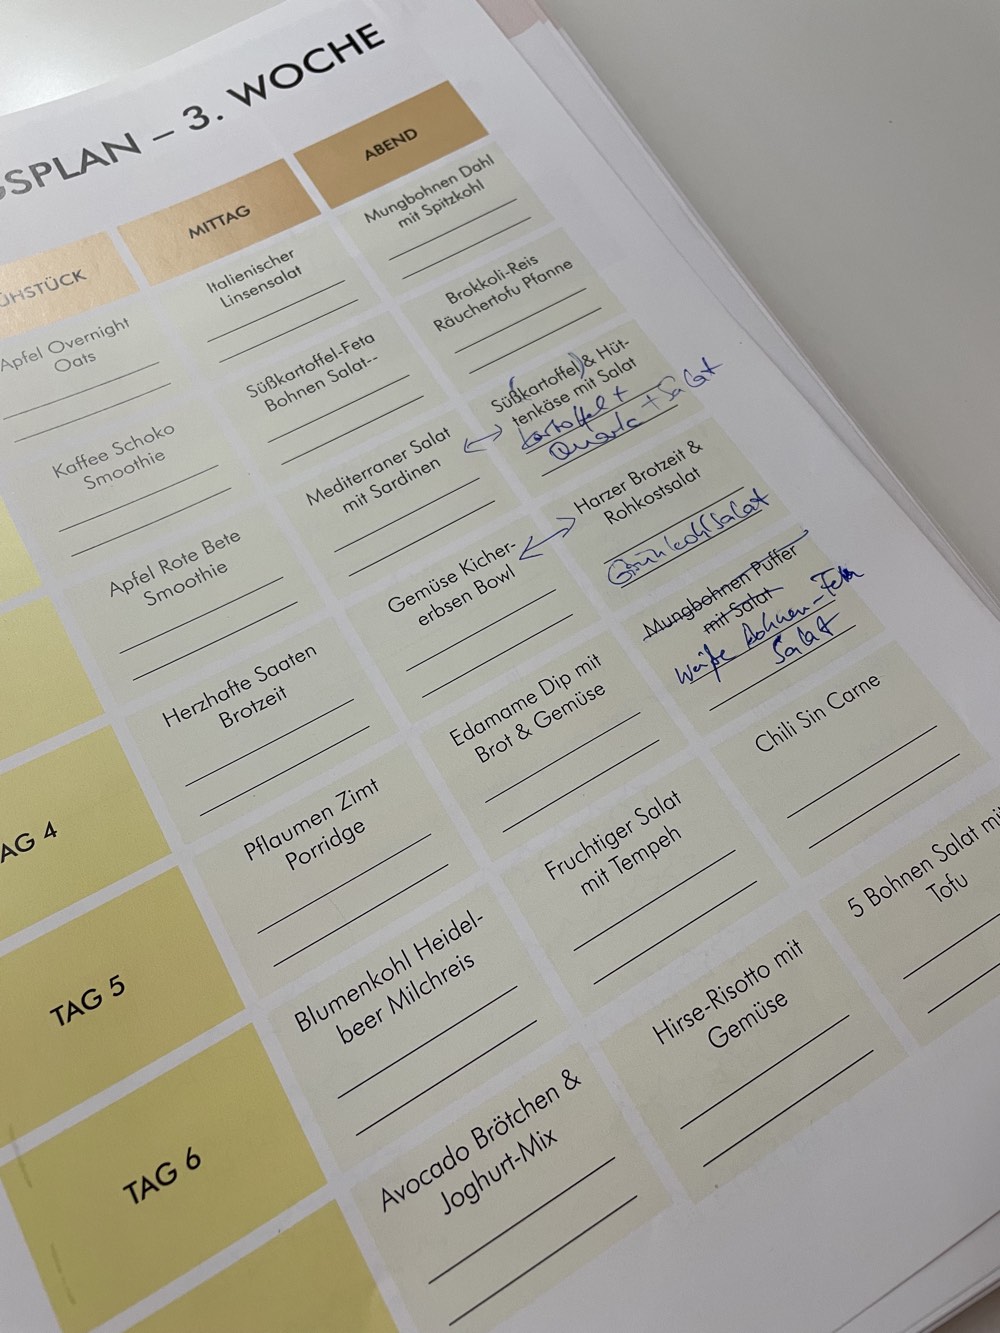 SPLAN – 3. WOCHE
ÜHSTÜCK
MITTAG
ABEND
Apfel Overnight
Oats
Italienischer
Linsensalat
Mungbohnen Dahl
mit Spitzkohl
Kaffee Schoko
Smoothie
Süßkartoffel-Feta
Bohnen Salat--
Brokkoli-Reis
Räuchertofu Pfanne
Apfel Rote Bete
Smoothie
Mediterraner Salat
mit Sardinen
Süß(kartoffel) & Hüt-
tenkäse mit Salat
Kartoffel +
Quark + Salat
AG 4
Herzhafte Saaten
Brotzeit
Gemüse Kicher-
erbsen Bowl
Harzer Brotzeit &
Rohkostsalat
Grünkohlsalat
TAG 5
Pflaumen Zimt
Porridge
Edamame Dip mit
Brot & Gemüse
Mungbohnen Puffer
mit Salat
weiße Bohnen-Feta
Salat
TAG 6
Blumenkohl Heidel-
beer Milchreis
Fruchtiger Salat
mit Tempeh
Chili Sin Carne
Avocado Brötchen &
Joghurt-Mix
Hirse-Risotto mit
Gemüse
5 Bohnen Salat mi
Tofu